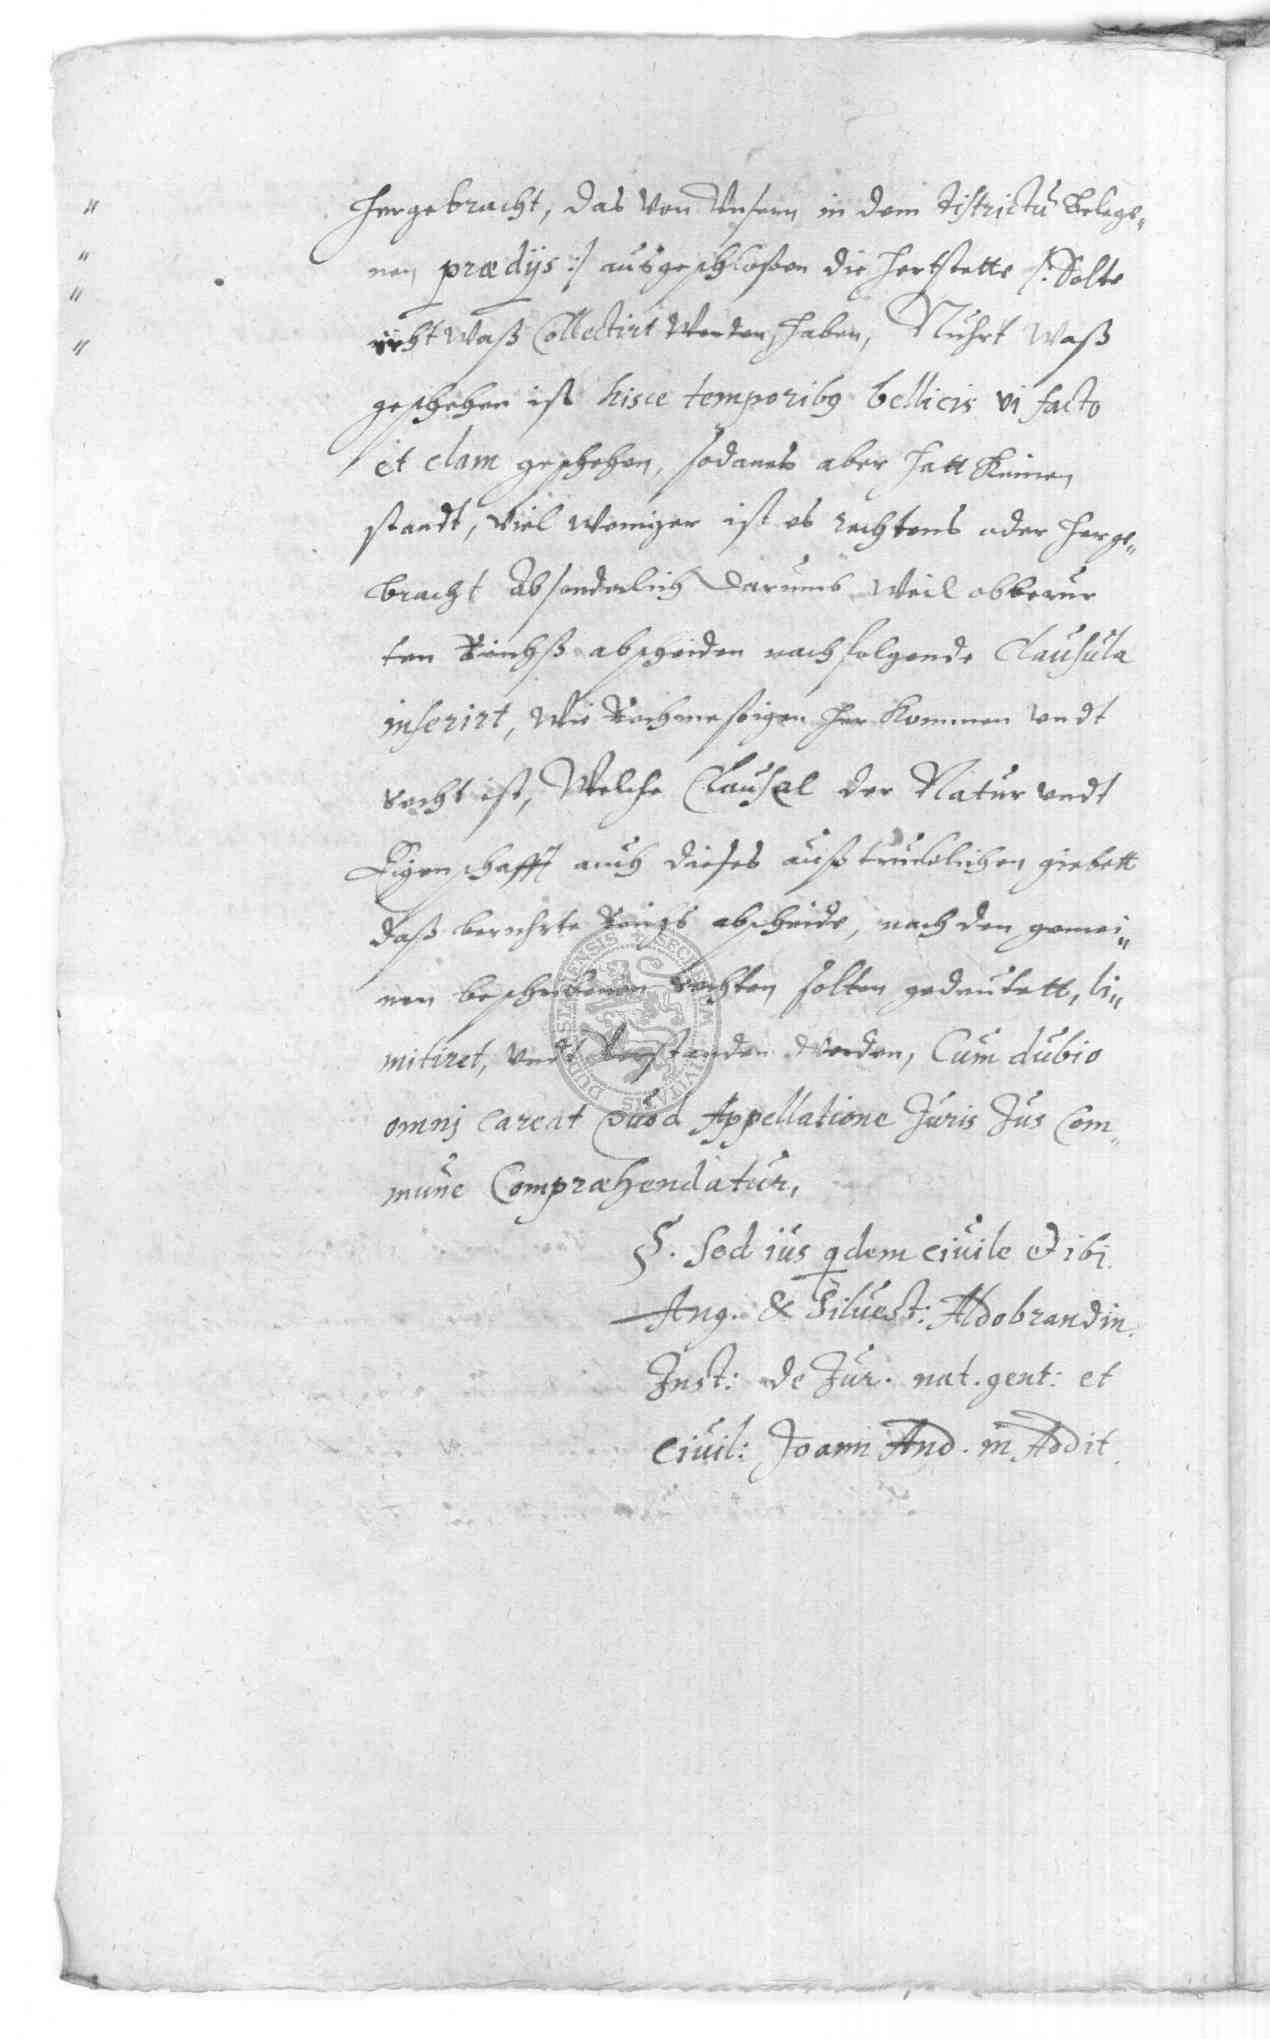 hergebracht, das von Unsern in dem districtu belege„
nen prædijs :/ ausgeschloßen die hertstette /: Solte
icht waß Collectirt werden, haben, Nuhrt waß
geschehen ist hisce temporibꝯ bellicis vi facto
et clam geschehen, sodanes aber hatt keinen
standt, viel weniger ist es rechtens oder herge„
bracht Absonderlich darumb weil obberur
ten Reichß abscheiden nachfolgende Clausula
inserirt, wie Rechmeßigen her kommen undt
recht ist, Welche Clausel der Natur undt
Eigenschafft auch dieses außtrucklichen giebett
daß berührte Reichs abscheide, nach den gemei„
nen beschribenen Rechten solten gedeutett, li„
mitiret, undt verstanden werden, Cum dubio
omnj careat Quod Appellatione Juris Jus Com„
mune Compræhendatur,
§. Sed ius qdem civile et ibi
Ang. & Siluest: Aldobrandin.
Inst: de Jur. nat. gent: et
Civil: Joann And. in Addit